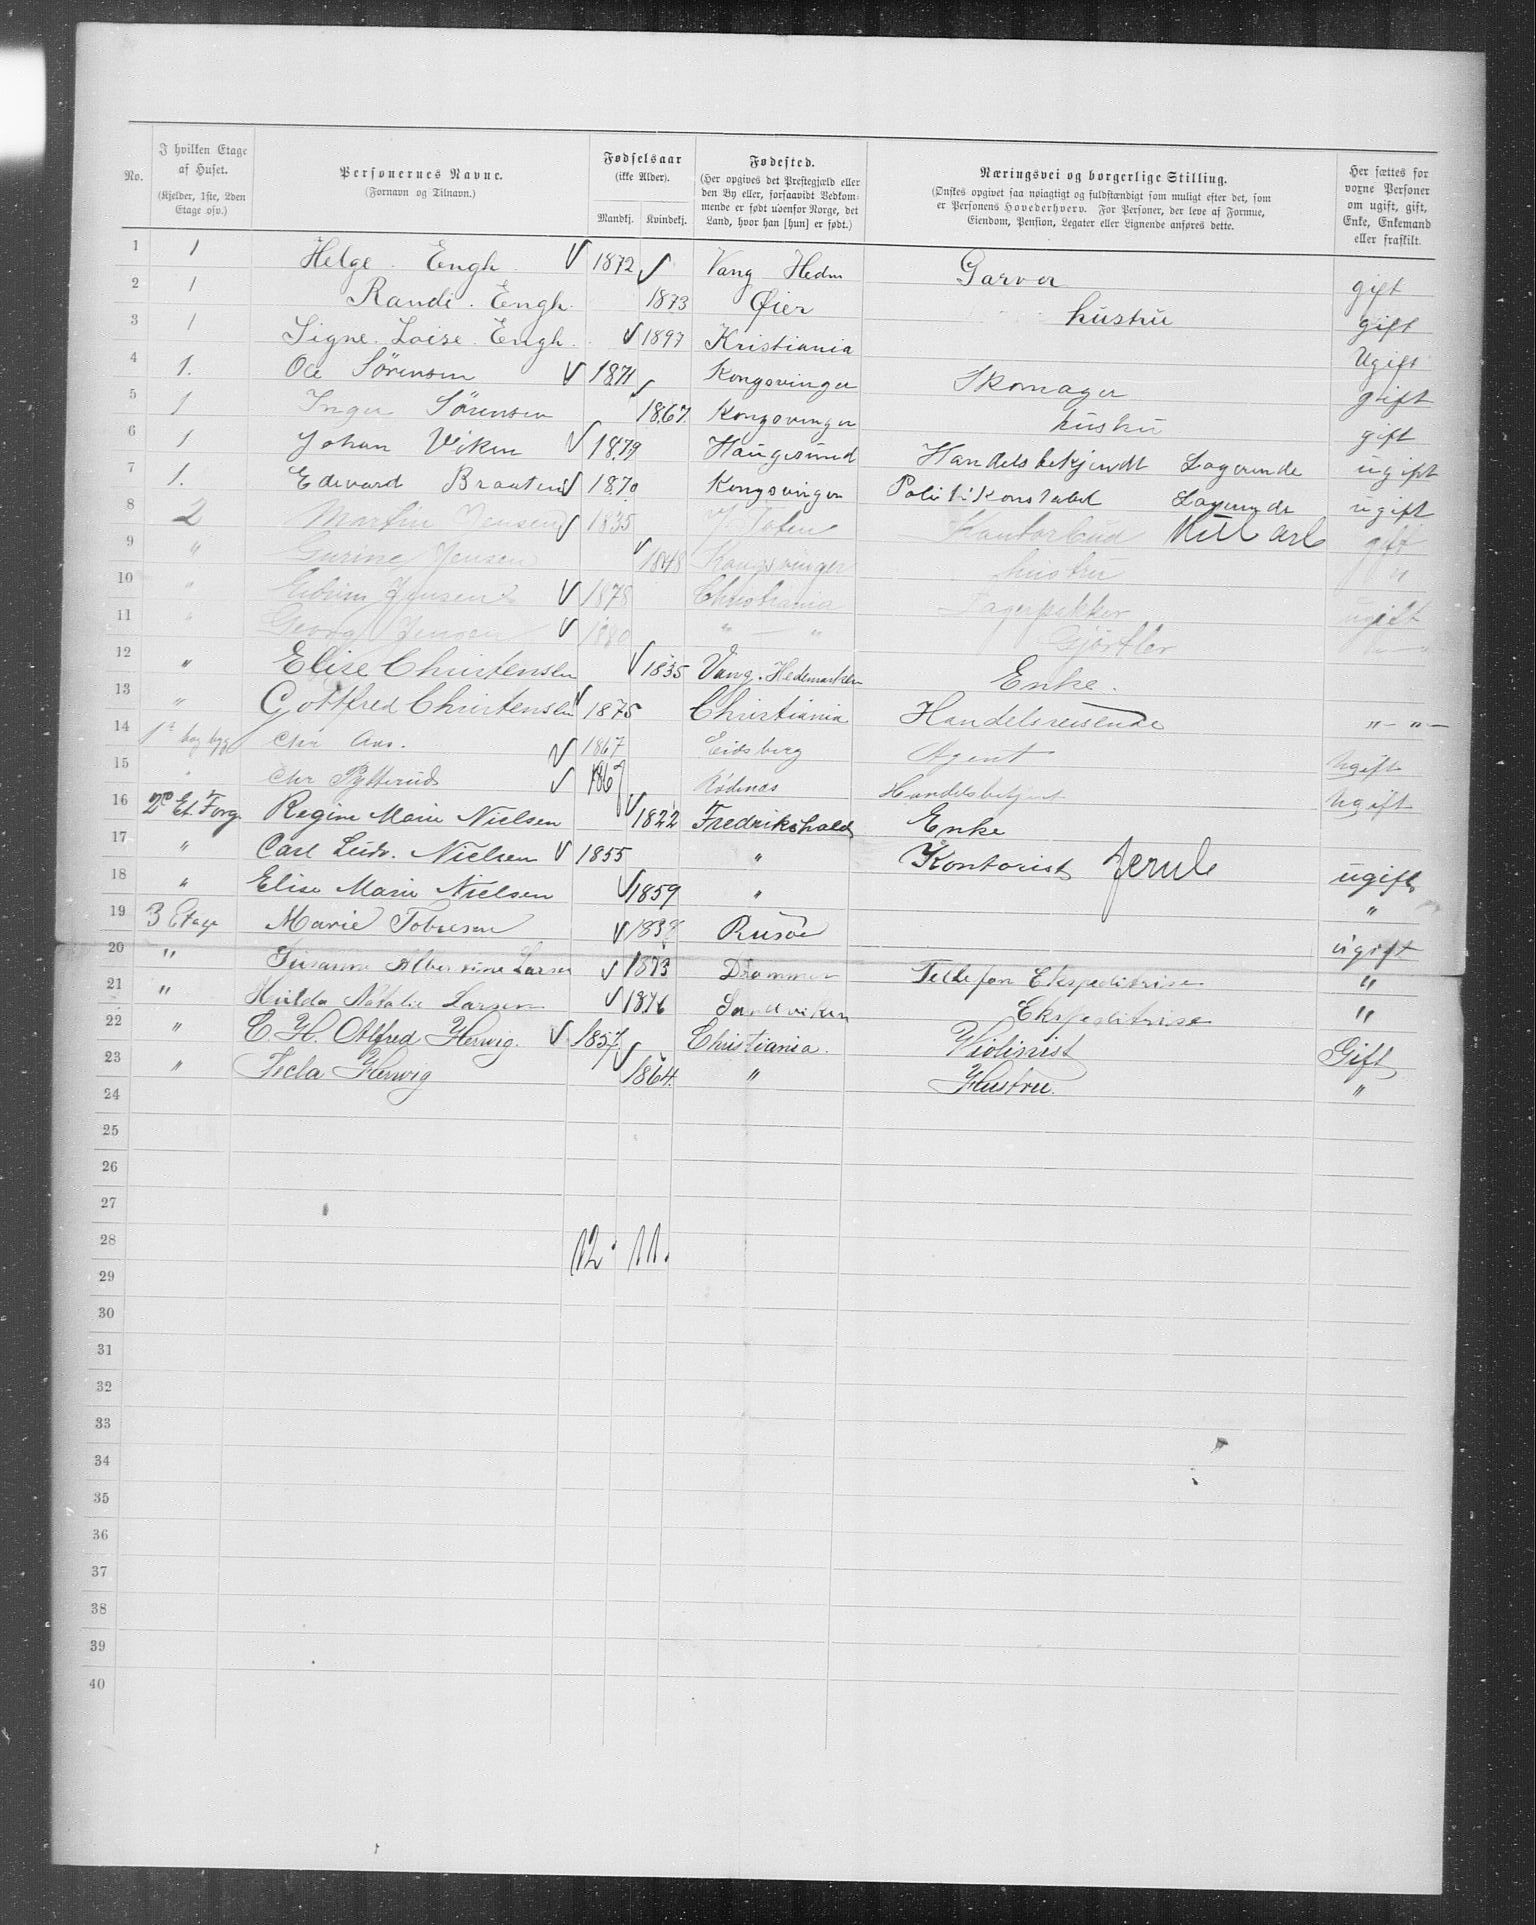 No. | I hvilken Etage af Huset. (Kjelder, 1ste, 2den Etage osv.) | Personernes Navne. (Fornavn og Tilnavn.) | Fødselsaar (ikke Alder). Mandkj. | Kvindekj. | Fødested. (Her opgives det Prestegjæld eller den By eller, forsaavidt Vedkommende er født udenfor Norge, det Land, hvor han [hun] er født.) | Næringsvei og borgerlige Stilling. (Ønskes opgivet saa nøiagtigt og fuldstændigt som muligt efter det, som er Personens Hovederhverv. For Personer, der leve af Formue, Eiendom, Pension, Legater eller Lignende anføres dette.) | Her sættes for voxne Personer om ugift, gift, Enke, Enkemand eller fraskilt.
1 | 1 | Helge Engh | 1872 | | Vang Hedm | Garver | gift
2 | 1 | Randi Engh | | 1873 | Øier | hustru | gift
3 | 1 | Signe Loise Engh | | 1897 | Kristiania | | Ugift
4 | 1. | Ole Sörensen | 1871 | | Kongsvinger | Skomager | gift
5 | 1 | Inger Sörensen | | 1867 | Kongsvinger | hustru | gift
6 | 1 | Johan Viken | 1879 | | Haugesund | Handelsbetjendt Logerende | ugift
7 | 1. | Edevard Braaten | 1870 | | Kongsvinger | Politikonstabel Logerende | ugift
8 | 2 | Martin Jensen | 1835 | | V Toten | Kontorbud | gift
9 | " | Gurine Jensen | | 1848 | Kongsvinger | hustru | "
10 | " | Jensen | 1878 | | Christiania | Lagerpakker | ugift
11 | " | Georg Jensen | 1880 | | " — " | Gjørtler | " — "
12 | " | Elise Christensen | | 1835 | Vang. Hedemarken | Enke. |
13 | " | Gottfred Christensen | 1875 | | Christiania | Handelsreisende | " — " —
14 | 1ste bag byg | Chr Aas. | 1867 | | Eidsberg | Agent | Ugift
15 | " | Chr Rytterud | 1867 | | Rödenæs | Handelsbetjent | Ugift
16 | 2d Et. Forg. | Regine Marie Nielsen | | 1822 | Fredrikshald | Enke |
17 | " | Carl Ludv. Nielsen | 1855 | | " | Kontorist | ugift
18 | " | Elise Marie Nielsen | | 1859 | " | | "
19 | 3 Etage | Marie Tobiesen | | 1838 | Rusöe | | ugift
20 | " | Susanne Albertine Larsen | | 1873 | Drammen | Tellefon Ekspeditrise | "
21 | " | Hulda Natalie Larsen | | 1876 | Sandviken | Ekspeditrise | "
22 | " | C. H. Alfred Herwig. | 1857 | | Christiania. | Violinist | Gift
23 | " | Tecla Herwig | | 1864. | " | Hustru. | "
24
25
26
27
28 | 12. | 11.
29
30
31
32
33
34
35
36
37
38
39
40